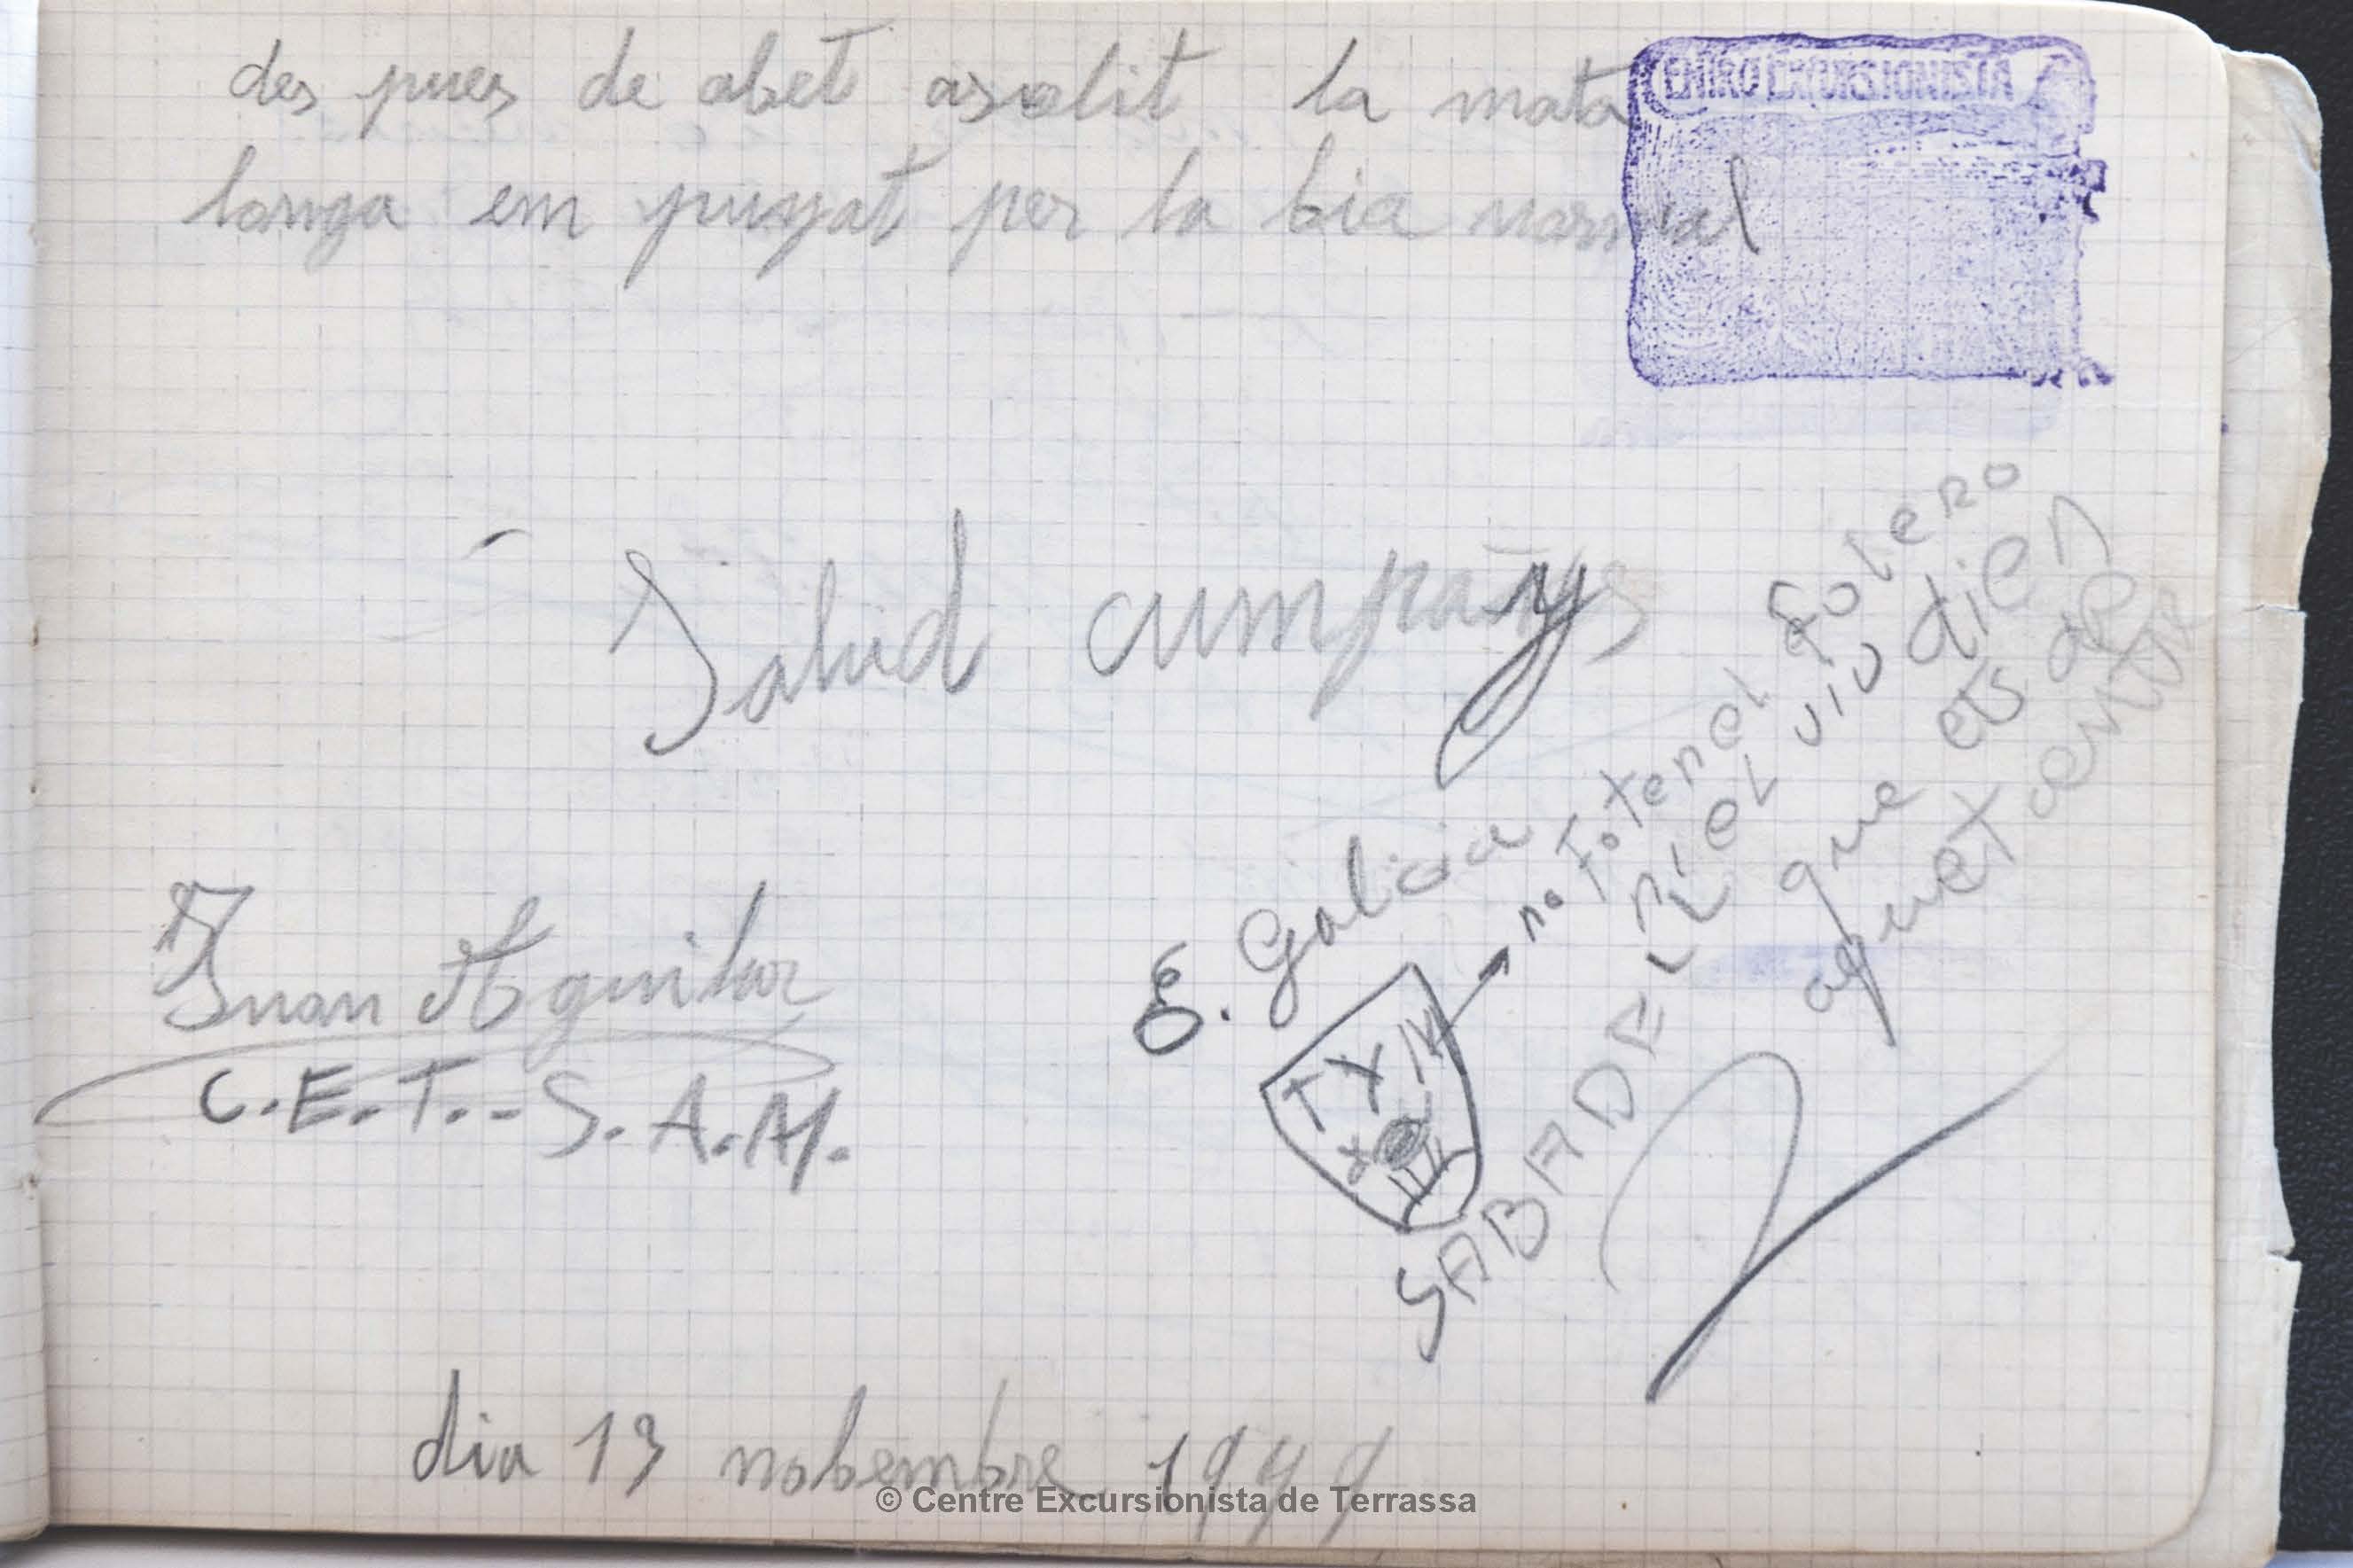 des pues de abet asolit la mata
longa em puyat per la bia normal
CENTRO EXCURSIONISTA
Salud cumpañys
Juan Aguilar
C.E.T.-S.A.M.
E. Galicia
no Fotenel folero
ni el viu dien
que ets de
aquet centre
SABADELL
dia 13 nobembre 1949
© Centre Excursionista de Terrassa